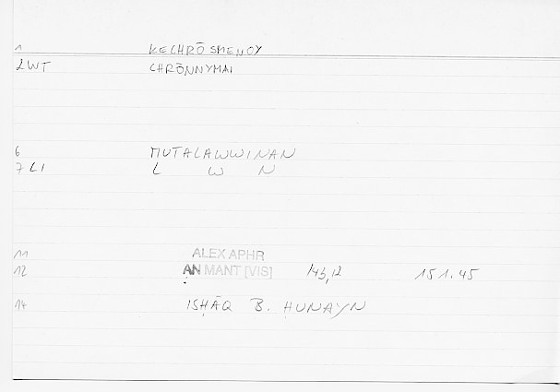 1 KECHRŌSMENOY
2WT CHRŌNNYMAI
6 MUTALAWWINAN
7 LI L W N
11 ALEX APHR
12 AN MANT [VIS] 151.45
14 ISḤĀQ B. ḤUNAYN